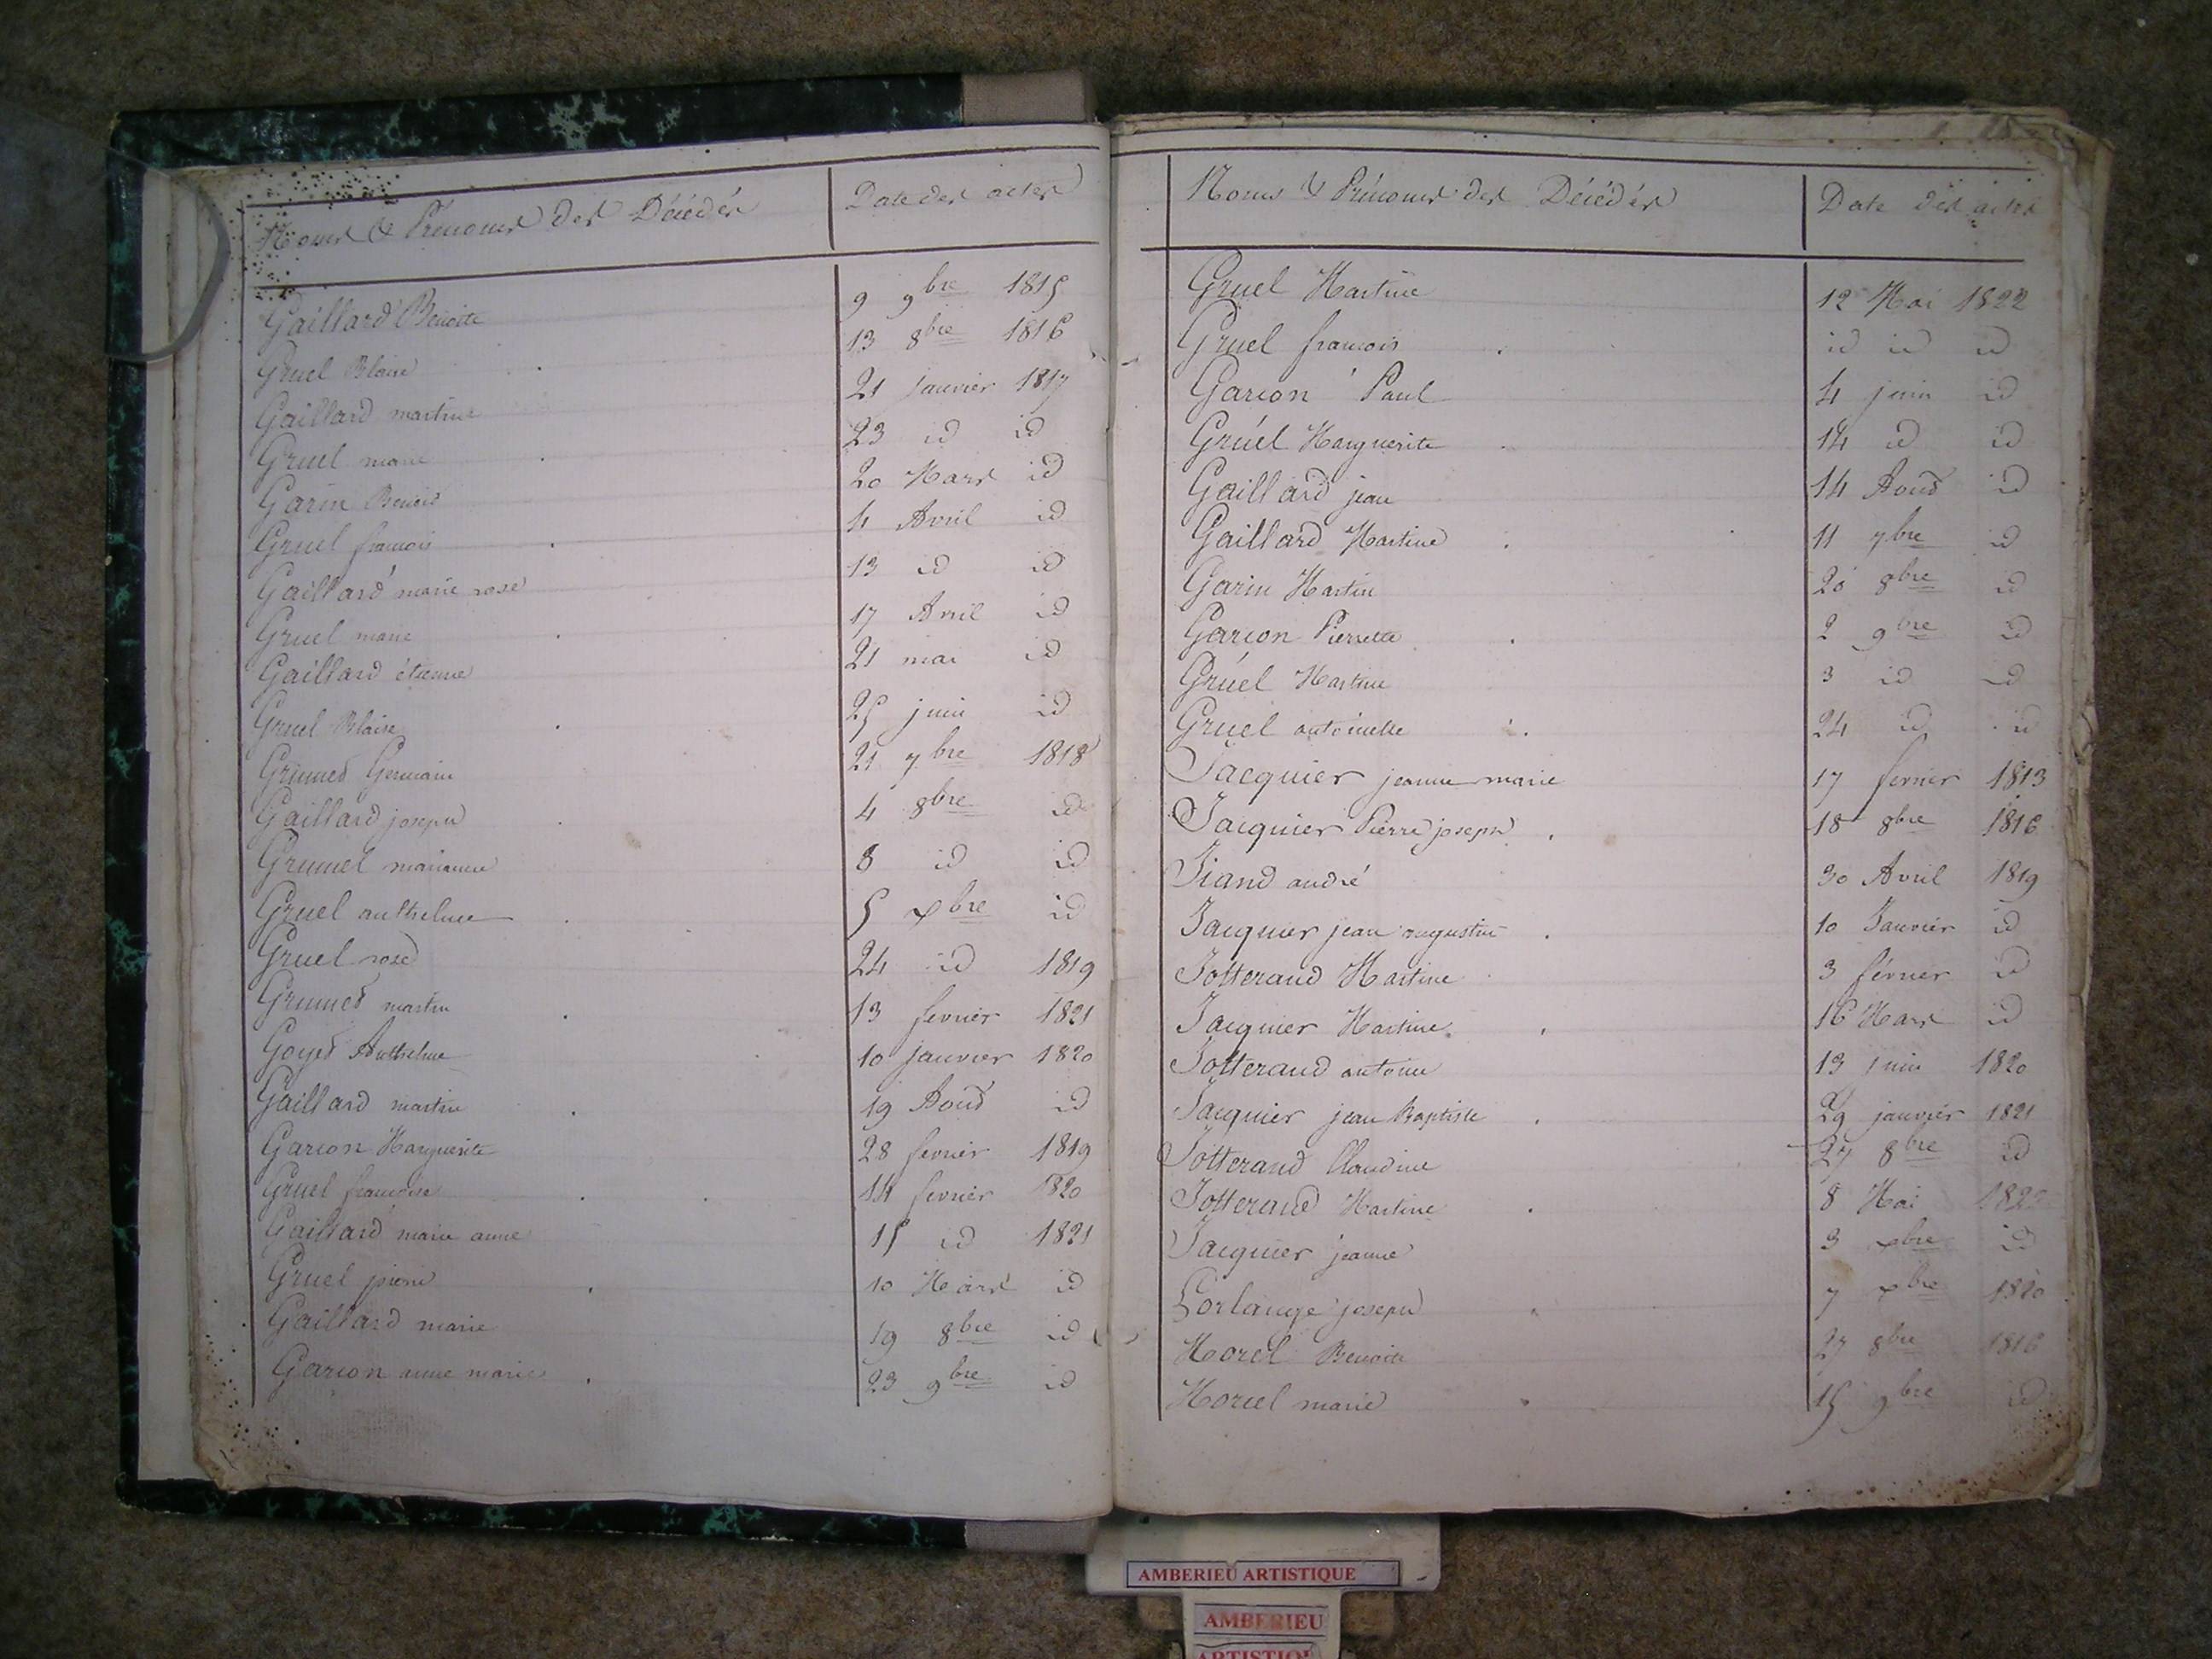 Noms & Prénoms des Décédés Date des actes
Gaillard Benoite 9 9bre 1815
Gruel Blaise 13 8bre 1816
Gaillard martine 21 janvier 1817
Gruel marie 23 id id
Garin Benoit 20 Mars id
Gruel francois 4 Avril id
Gaillard marie rose 13 id id
Gruel marie 17 Avril id
Gaillard étienne 21 mai id
Gruel Blaise 25 juin id
Grumet Germain 21 7bre 1818
Gaillard joseph 4 8bre id
Grumel marianne 8 id id
Gruel anthelme 5 xbre id
Gruel rose 24 id 1819
Grumet martin 13 fevrier 1821
Goyet Anthelme 10 janvier 1820
Gaillard martin 19 Aout id
Garcon Marguerite 28 fevrier 1819
Gruel francoise 14 fevrier 1820
Gaillard marie anne 15 id 1821
Gruel pierre 10 Mars id
Gaillard marie 19 8bre id
Garcon anne marie 23 9bre id
Noms & Prénoms des Décédés Date des actes
Gruel Martine 12 Mai 1822
Gruel francois id id id
Garcon Paul 4 juin id
Gruel Marguerite 14 id id
Gaillard jean 14 Aout id
Gaillard Martine 11 7bre id
Garin Martin 20 8bre id
Garcon Pierrette 2 9bre id
Gruel Martine 3 id id
Gruel antoinette 24 id id
Jacquier jeanne marie 17 fevrier 1813
Jacquier Pierre joseph 18 8bre 1816
Jiand andré 30 Avril 1819
Jacquier jean augustin 10 Janvier id
Jotterand Martine 3 février id
Jacquier Martine 16 Mars id
Jotterand antoine 13 juin 1820
Jacquier jean Baptiste 29 janvier 1821
Jotterand Claudine 27 8bre id
Jotterand Martine 8 Mai 1822
Jacquier jeanne 3 xbre id
Lorlange joseph 7 xbre 1820
Morel Benoite 27 8bre 1816
Morel marie 15 9bre id
AMBERIEU ARTISTIQUE
AMBERIEU
ARTISTIQUE